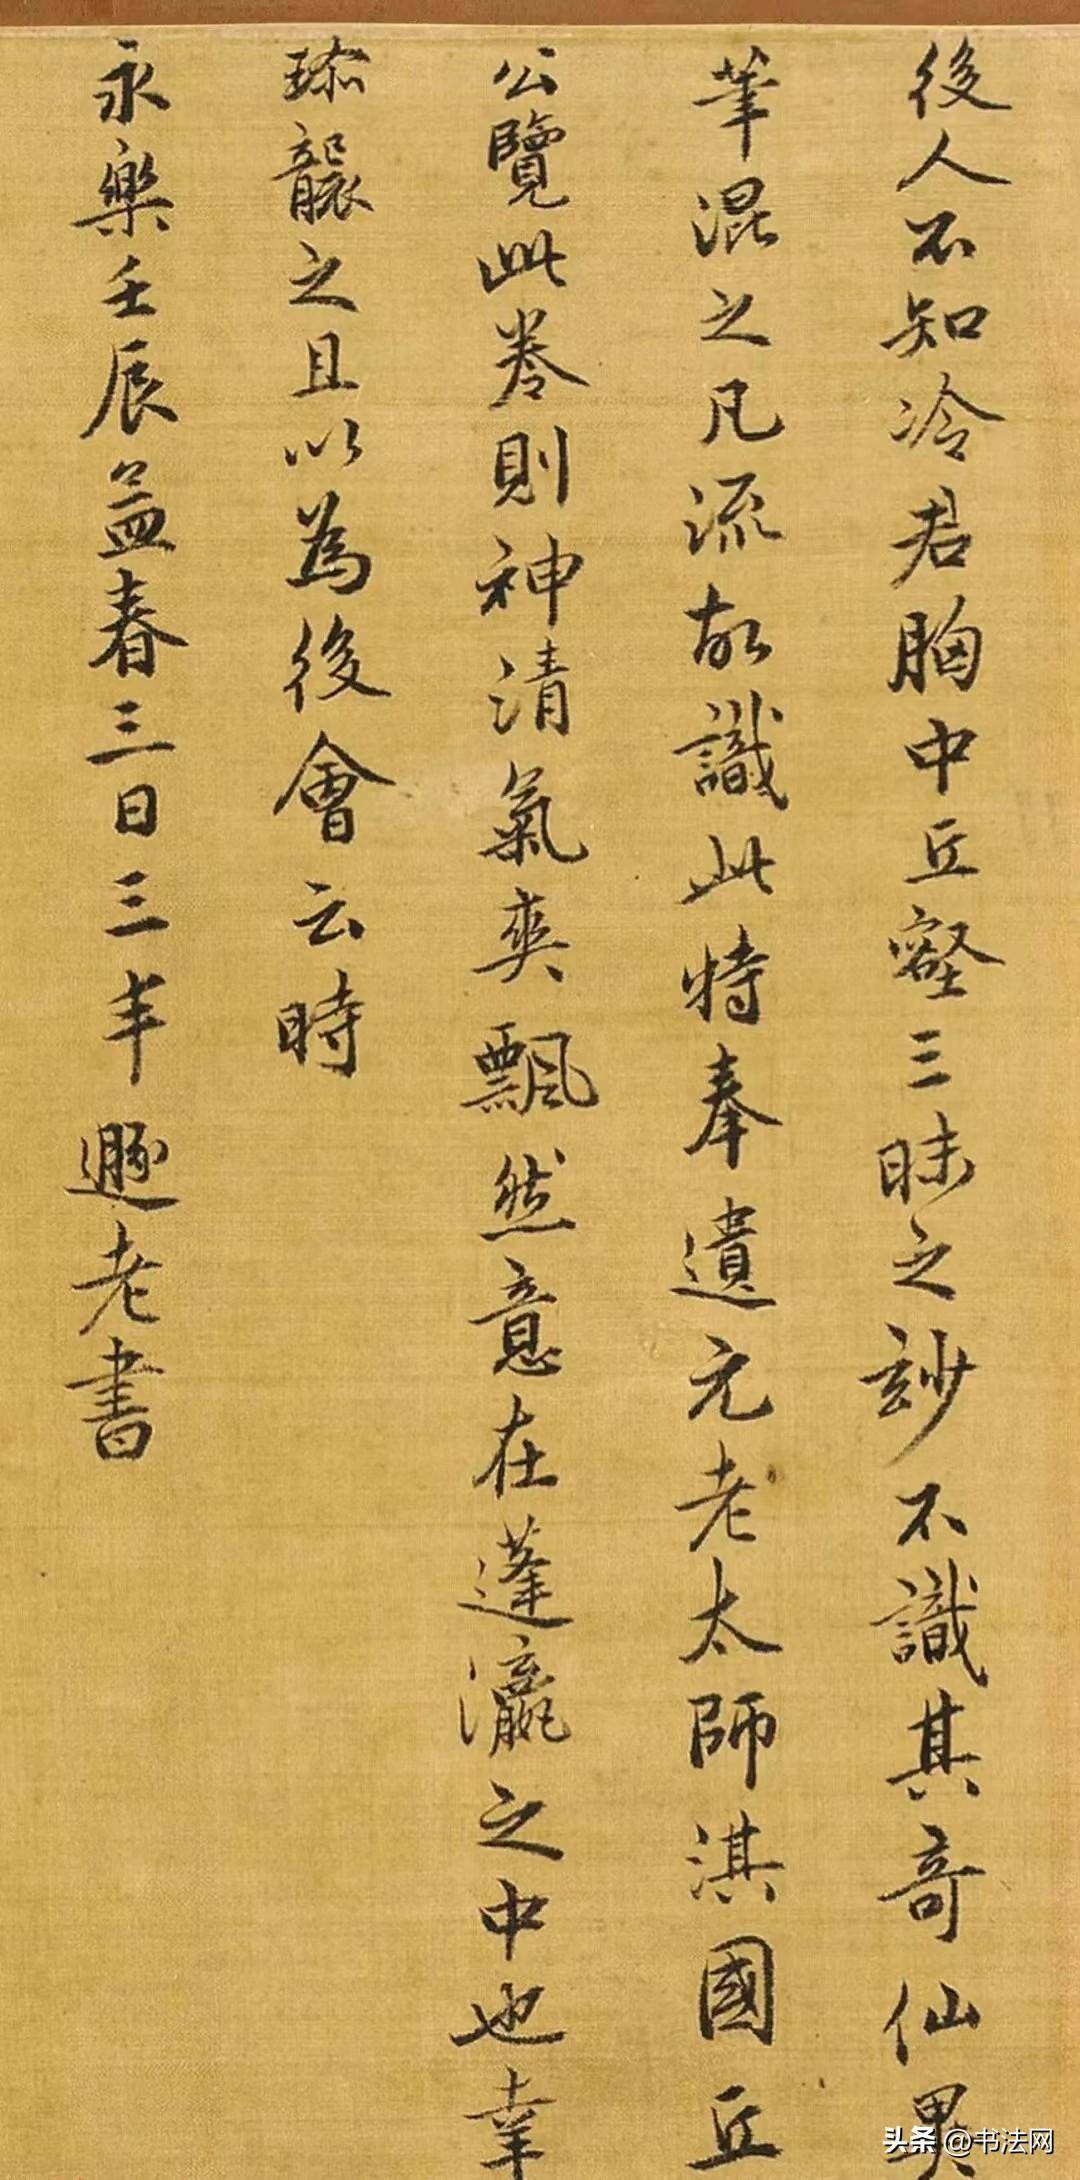 後人不知冷君胸中丘壑三昧之玅不識其奇仙異
筆混之凡流故識此特奉遺元老太師淇國丘
公覽此卷則神清氣爽飄然意在蓬瀛之中也幸
珎襲之且以為後會云時
永樂壬辰孟春三日三丰遯老書
头条@书法网